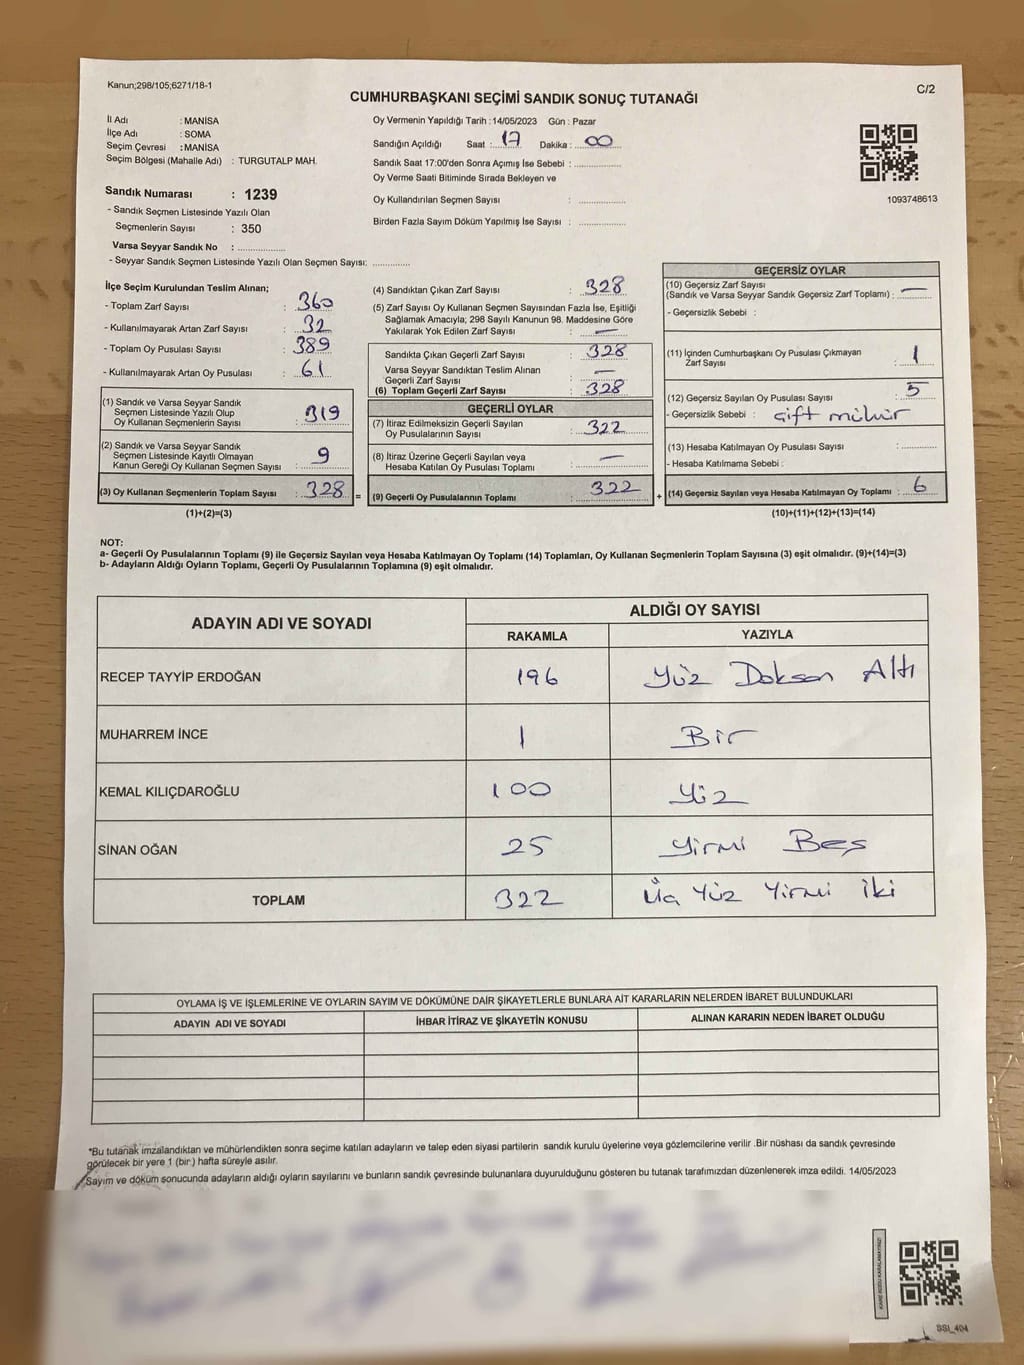 Kanun;298/105;6271/18-1
C/2
CUMHURBAŞKANI SEÇİMİ SANDIK SONUÇ TUTANAĞI
İl Adı : MANİSA
İlçe Adı : SOMA
Seçim Çevresi : MANİSA
Seçim Bölgesi (Mahalle Adı) : TURGUTALP MAH.
Sandık Numarası : 1239
- Sandık Seçmen Listesinde Yazılı Olan
Seçmenlerin Sayısı : 350
Varsa Seyyar Sandık No : ..................
- Seyyar Sandık Seçmen Listesinde Yazılı Olan Seçmen Sayısı: .............
Oy Vermenin Yapıldığı Tarih : 14/05/2023 Gün : Pazar
Sandığın Açıldığı Saat : 17 Dakika : 00
Sandık Saat 17:00'den Sonra Açımış İse Sebebi : ................
Oy Verme Saati Bitiminde Sırada Bekleyen ve
Oy Kullandırılan Seçmen Sayısı : ................
Birden Fazla Sayım Döküm Yapılmış İse Sayısı : ................
1093748613
İlçe Seçim Kurulundan Teslim Alınan;
- Toplam Zarf Sayısı : 360
- Kullanılmayarak Artan Zarf Sayısı : 32
- Toplam Oy Pusulası Sayısı : 389
- Kullanılmayarak Artan Oy Pusulası : 61
(1) Sandık ve Varsa Seyyar Sandık
Seçmen Listesinde Yazılı Olup
Oy Kullanan Seçmenlerin Sayısı : 319
(2) Sandık ve Varsa Seyyar Sandık
Seçmen Listesinde Kayıtlı Olmayan
Kanun Gereği Oy Kullanan Seçmen Sayısı : 9
(3) Oy Kullanan Seçmenlerin Toplam Sayısı : 328 =
(1)+(2)=(3)
(4) Sandıktan Çıkan Zarf Sayısı : 328
(5) Zarf Sayısı Oy Kullanan Seçmen Sayısından Fazla İse, Eşitliği
Sağlamak Amacıyla; 298 Sayılı Kanunun 98. Maddesine Göre
Yakılarak Yok Edilen Zarf Sayısı : —
Sandıkta Çıkan Geçerli Zarf Sayısı : 328
Varsa Seyyar Sandıktan Teslim Alınan
Geçerli Zarf Sayısı : —
(6) Toplam Geçerli Zarf Sayısı : 328
GEÇERLİ OYLAR
(7) İtiraz Edilmeksizin Geçerli Sayılan
Oy Pusulalarının Sayısı : 322
(8) İtiraz Üzerine Geçerli Sayılan veya
Hesaba Katılan Oy Pusulası Toplamı : —
(9) Geçerli Oy Pusulalarının Toplamı : 322 +
GEÇERSİZ OYLAR
(10) Geçersiz Zarf Sayısı
(Sandık ve Varsa Seyyar Sandık Geçersiz Zarf Toplamı) : —
- Geçersizlik Sebebi :
(11) İçinden Cumhurbaşkanı Oy Pusulası Çıkmayan
Zarf Sayısı : 1
(12) Geçersiz Sayılan Oy Pusulası Sayısı : 5
- Geçersizlik Sebebi : çift mühür
(13) Hesaba Katılmayan Oy Pusulası Sayısı : ............
- Hesaba Katılmama Sebebi :
(14) Geçersiz Sayılan veya Hesaba Katılmayan Oy Toplamı : 6
(10)+(11)+(12)+(13)=(14)
NOT:
a- Geçerli Oy Pusulalarının Toplamı (9) ile Geçersiz Sayılan veya Hesaba Katılmayan Oy Toplamı (14) Toplamları, Oy Kullanan Seçmenlerin Toplam Sayısına (3) eşit olmalıdır. (9)+(14)=(3)
b- Adayların Aldığı Oyların Toplamı, Geçerli Oy Pusulalarının Toplamına (9) eşit olmalıdır.
ADAYIN ADI VE SOYADI ALDIĞI OY SAYISI
RAKAMLA YAZIYLA
RECEP TAYYİP ERDOĞAN 196 Yüz Doksan Altı
MUHARREM İNCE 1 Bir
KEMAL KILIÇDAROĞLU 100 Yüz
SİNAN OĞAN 25 Yirmi Beş
TOPLAM 322 Üç Yüz Yirmi İki
OYLAMA İŞ VE İŞLEMLERİNE VE OYLARIN SAYIM VE DÖKÜMÜNE DAİR ŞİKAYETLERLE BUNLARA AİT KARARLARIN NELERDEN İBARET BULUNDUKLARI
ADAYIN ADI VE SOYADI İHBAR İTİRAZ VE ŞİKAYETİN KONUSU ALINAN KARARIN NEDEN İBARET OLDUĞU
*Bu tutanak imzalandıktan ve mühürlendikten sonra seçime katılan adayların ve talep eden siyasi partilerin sandık kurulu üyelerine veya gözlemcilerine verilir .Bir nüshası da sandık çevresinde
görülecek bir yere 1 (bir) hafta süreyle asılır.
Sayım ve döküm sonucunda adayların aldığı oyların sayılarını ve bunların sandık çevresinde bulunanlara duyurulduğunu gösteren bu tutanak tarafımızdan düzenlenerek imza edildi. 14/05/2023
KARE KODU KARALAMAYINIZ!
SSI_404